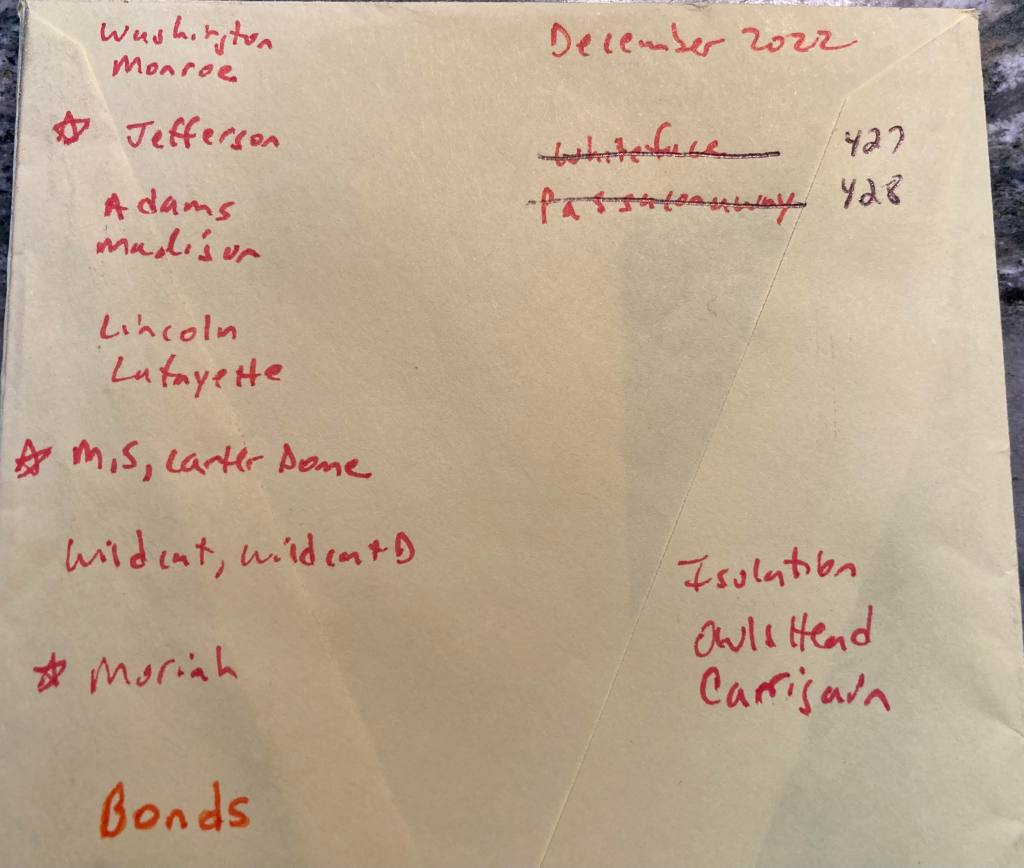 Washington
Monroe
December 2022
☆ Jefferson
Whiteface 427
Adams
Passaconaway 428
Madison
Lincoln
Lafayette
☆ M, S, Carter Dome
Wildcat, Wildcat D
Isolation
Owls Head
☆ Moriah
Carrigain
Bonds